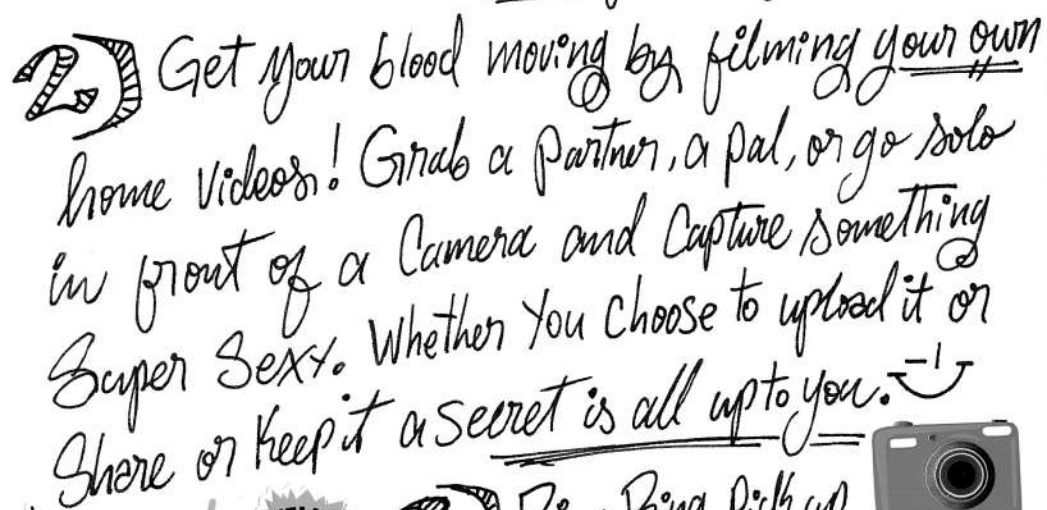 2) Get your blood moving by filming your own
home videos! Grab a partner, a pal, or go solo
in front of a Camera and Capture something
Super Sexy. Whether You Choose to upload it or
Share or Keep it a secret is all up to you.